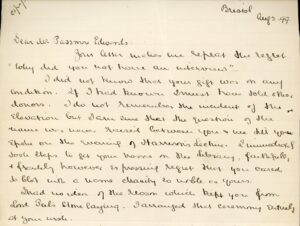 Bristol
Aug 3. 99.
Dear Mr Passmore Edwards.
Your letter makes me repeat the regret
"Why did you not have an interview".
I did not know that your gift was on any
condition. If I had known I must have told other
donors. I do not remember the incident of the
but I am sure that the question of the
name was never raised between you & me till you
spoke on the evening of Harrison's lecture. I immediately
took steps to get your name on the Library, faithfully,
& frankly however expressing regret that you cared
to blot with a name charity so noble as yours.
I had no idea of the reason which kept you from
laying. I arranged that ceremony entirely
at your wish.